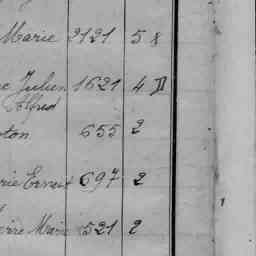 Marie 2121 5 8
Julien 1621 4 D
Alfred
ton 655 2
rie Ernest 697 2
erre Marie 521 2